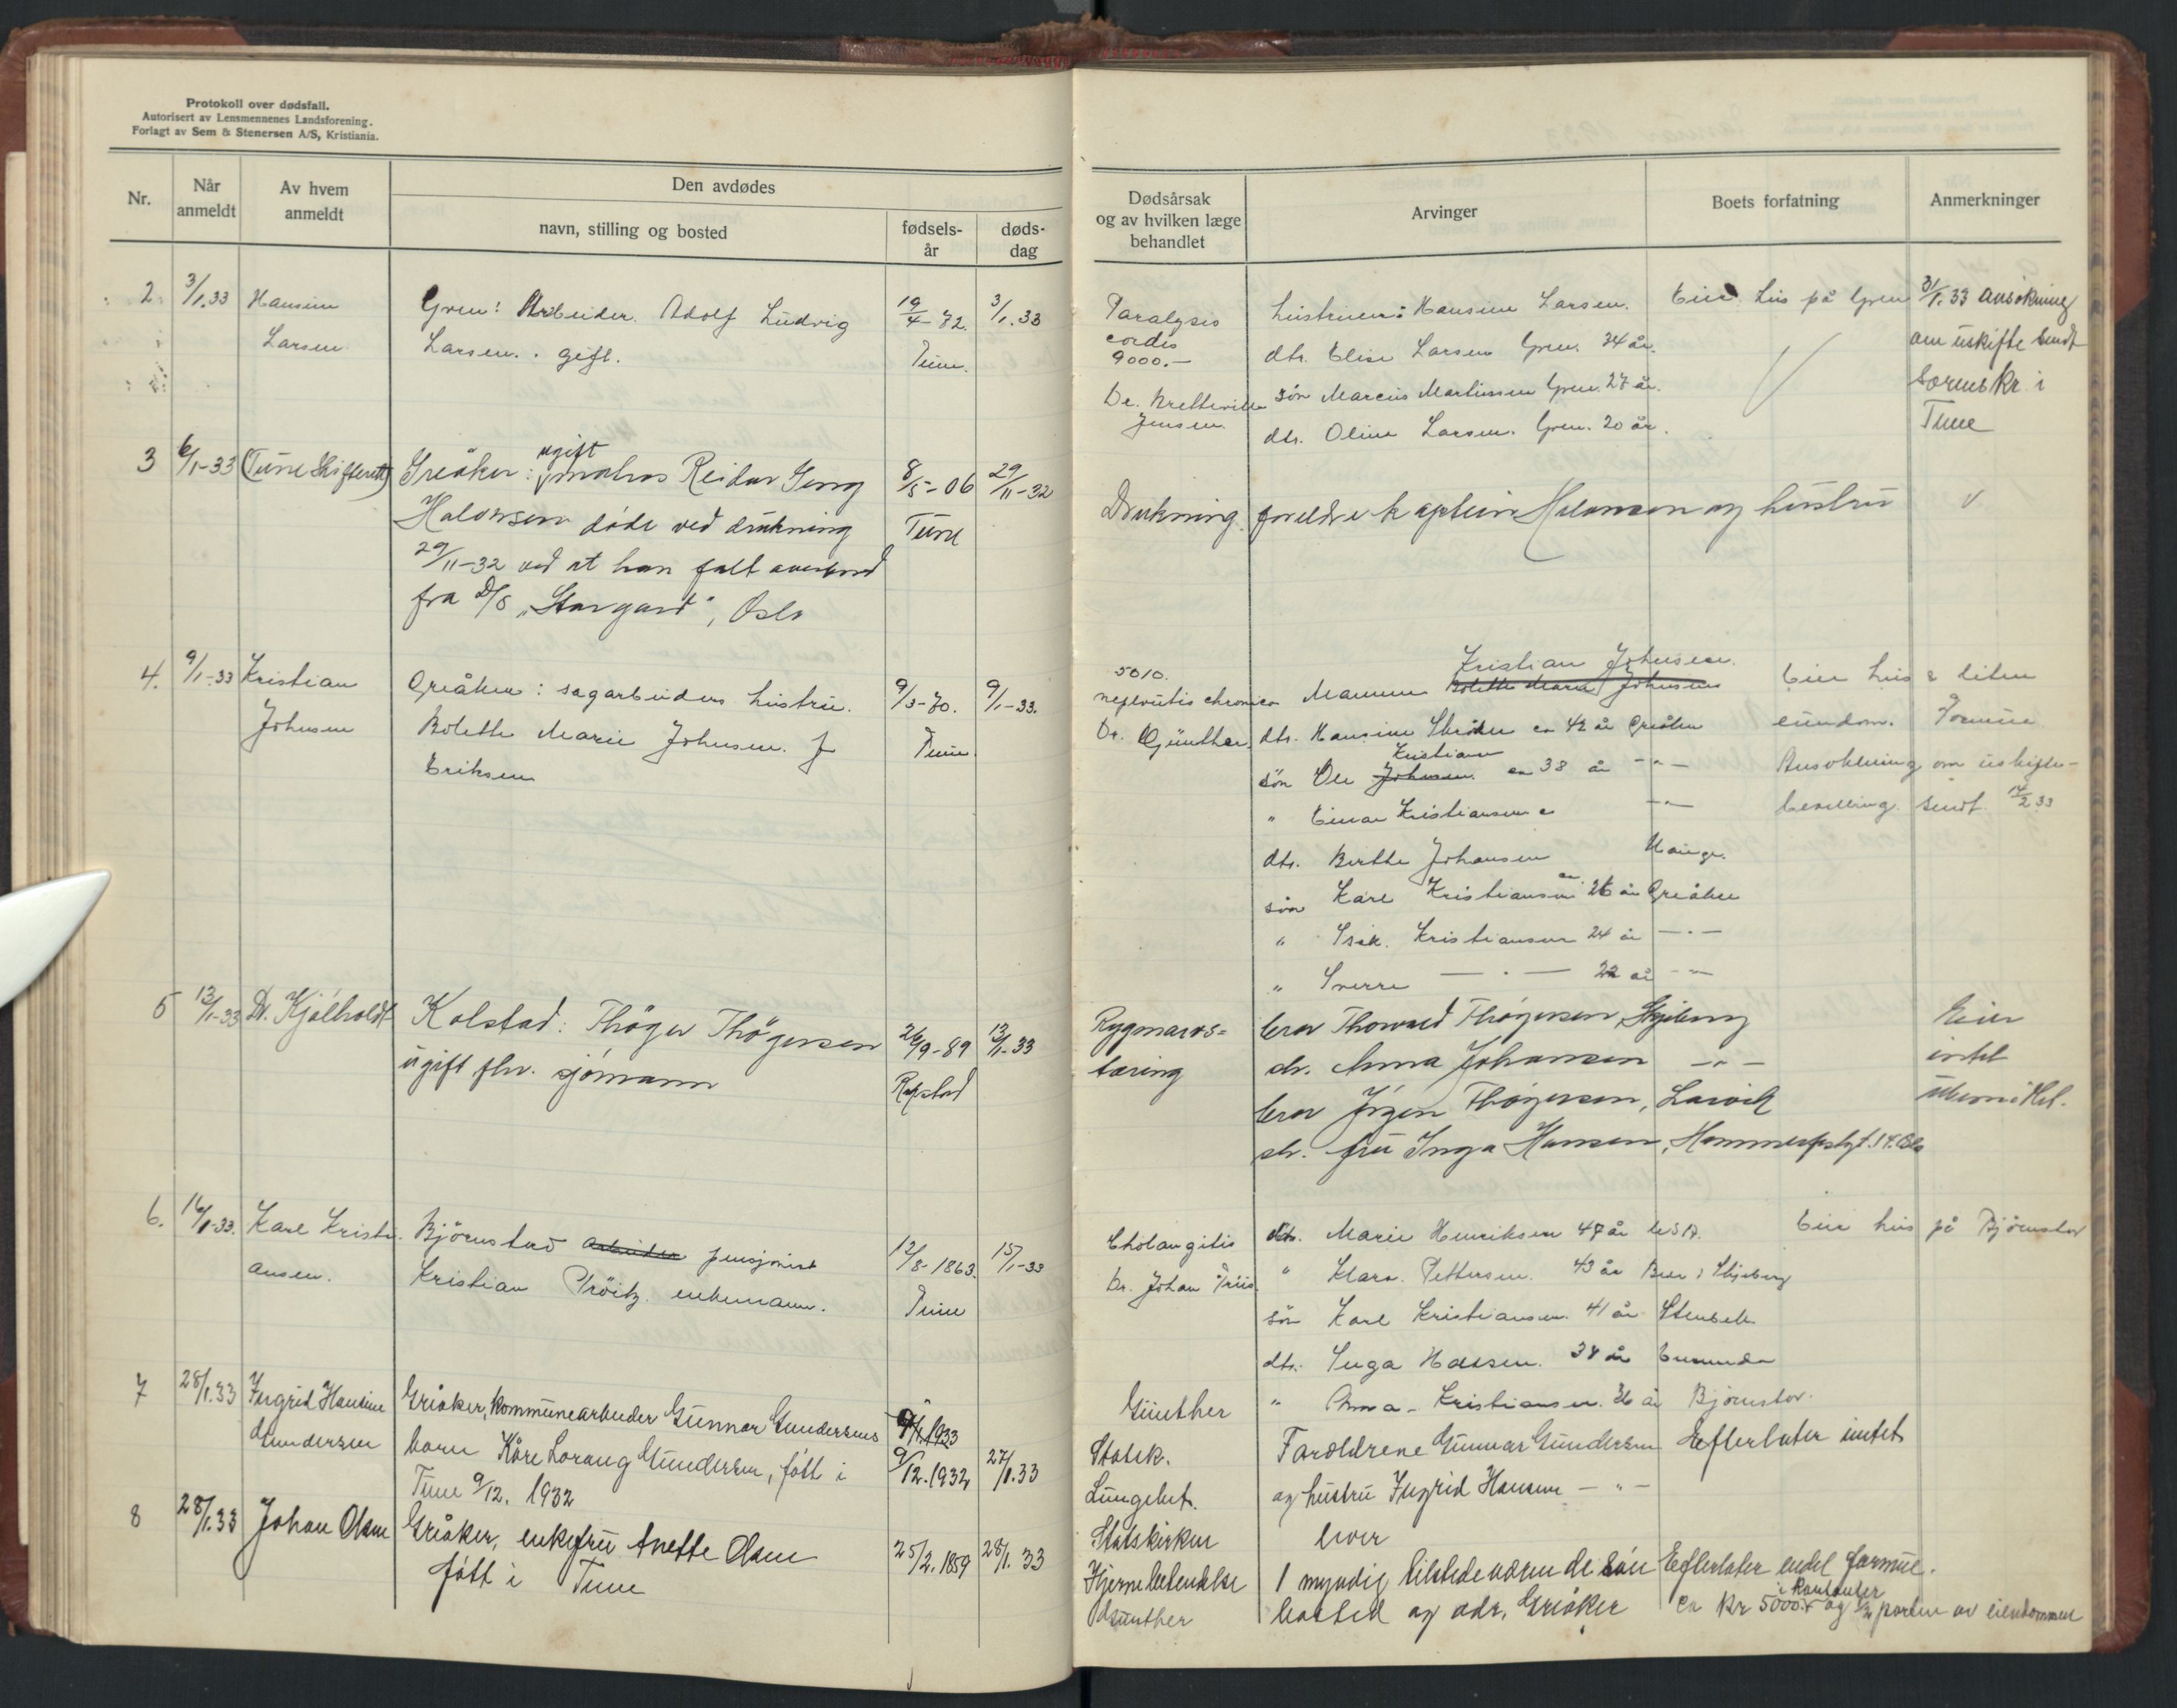 Protokoll over dødsfall.
Autorisert av Lensmennenes Landsforening.
Forlagt av Sem & Stenersen A/S, Kristiania.
Nr.
Når anmeldt
Av hvem anmeldt
Den avdødes
navn, stilling og bosted
fødsels-år
døds-dag
Dødsårsak og av hvilken læge behandlet
Arvinger
Boets forfatning
Anmerkninger
2 3/1.33 Hansine Larsen
Gren: Arbeider Adolf Ludvig
Larsen. gift.
19/4-72. Tune.
3/1.33
Paralysis
cordis
9000.-
Dr.
Jensen.
hustruen: Hansine Larsen.
dtr. Elise Larsen Gren. 34 år.
søn Marcus Martinsen Gren. 27 år.
dtr. Oline Larsen. Gren. 20 år.
Eier hus på Gren
3/1.33 ansökning
om uskifte sendt
sorenskr. i
Tune
3 6/1-33 (Tune Skifterett)
Greåker: ugift matros Reidar
Halvorsen döde ved drukning
29/11-32 ved at han falt overbord
fra D/S "Stargard", Oslo
8/5-06 Tune
29/11-32
Drukning
foreldre kaptein Halvorsen og hustru
4. 9/1-33 Kristian
Johnsen
Greåker: sagarbeiders hustru.
Bolette Marie Johnsen. f
Eriksen
9/3-70. Tune.
9/1-33.
5010.
Dr. Günther.
Kristian Johnsen.
Mannen Bolette Marie Johnsens
dtr. Hansine ca 42 år Greåker
Kristian
søn Ole Johnsen. ca 38 år -"-
" Einar Kristiansen -"-
dtr. Berthe Johansen
søn Kare Kristiansen ca. 26 år Greåker
" Isak. Kristiansen 24 år -"-
" Sverre -"- 22 år -"-
Eier hus & liten
eiendom.
Ansökning om uskifte-
bevilling sendt 14/2 33
5 13/1-33 Dr. Kjølholdt
Kolstad: Thöger Thögersen
ugift fhv. sjömann
26/9-89
13/1-33
Rygmarvs=
tæring
bror Thorvald Thögersen, Skjeberg
str. Anna Johansen -"-
bror Jörgen Thögersen, Larvik
str. fru Inga Hansen,
Eier
intet
6. 16/1-33. Karl Kristi-
ansen.
Björnstad arbeider pensjonist
Kristian Pröitz. enkemann.
12/8-1863. Tune
15/1-33
Cholangitis
Dr. Johan Friis.
dtr. Marie Henriksen 47 år USA.
" Klara. Pettersen. 43 år Skjeberg
søn Karl Kristiansen. 41 år
dtr. Inga 38 år
" Anna Kristiansen. 36 år Björnstad.
Eier hus på Björnstad
7 28/1.33 Ingrid Hansine
Gundersen
Greåker, kommunearbeider Gunnar Gundersens
barn Kåre Lorang Gundersen, født i
Tune 9/12. 1932
9/12.1932
27/1.33
Günther
Statsk.
Lungebet.
Foreldrene Gunnar Gundersen
og hustru Ingrid Hansine -"-
Efterlater intet
8 28/1.33 Johan Olsen
Greåker, enkefru Anette Olsen
født i Tune
25/2.1859
28/1.33
Statskirken
Hjerneblødelse
Günther
1 myndig tilstedeværende sön
bosted og adr. Greåker
Efterlater endel formue.
i kontanter
ca kr 5000.- og 1/2 parten av eiendommen